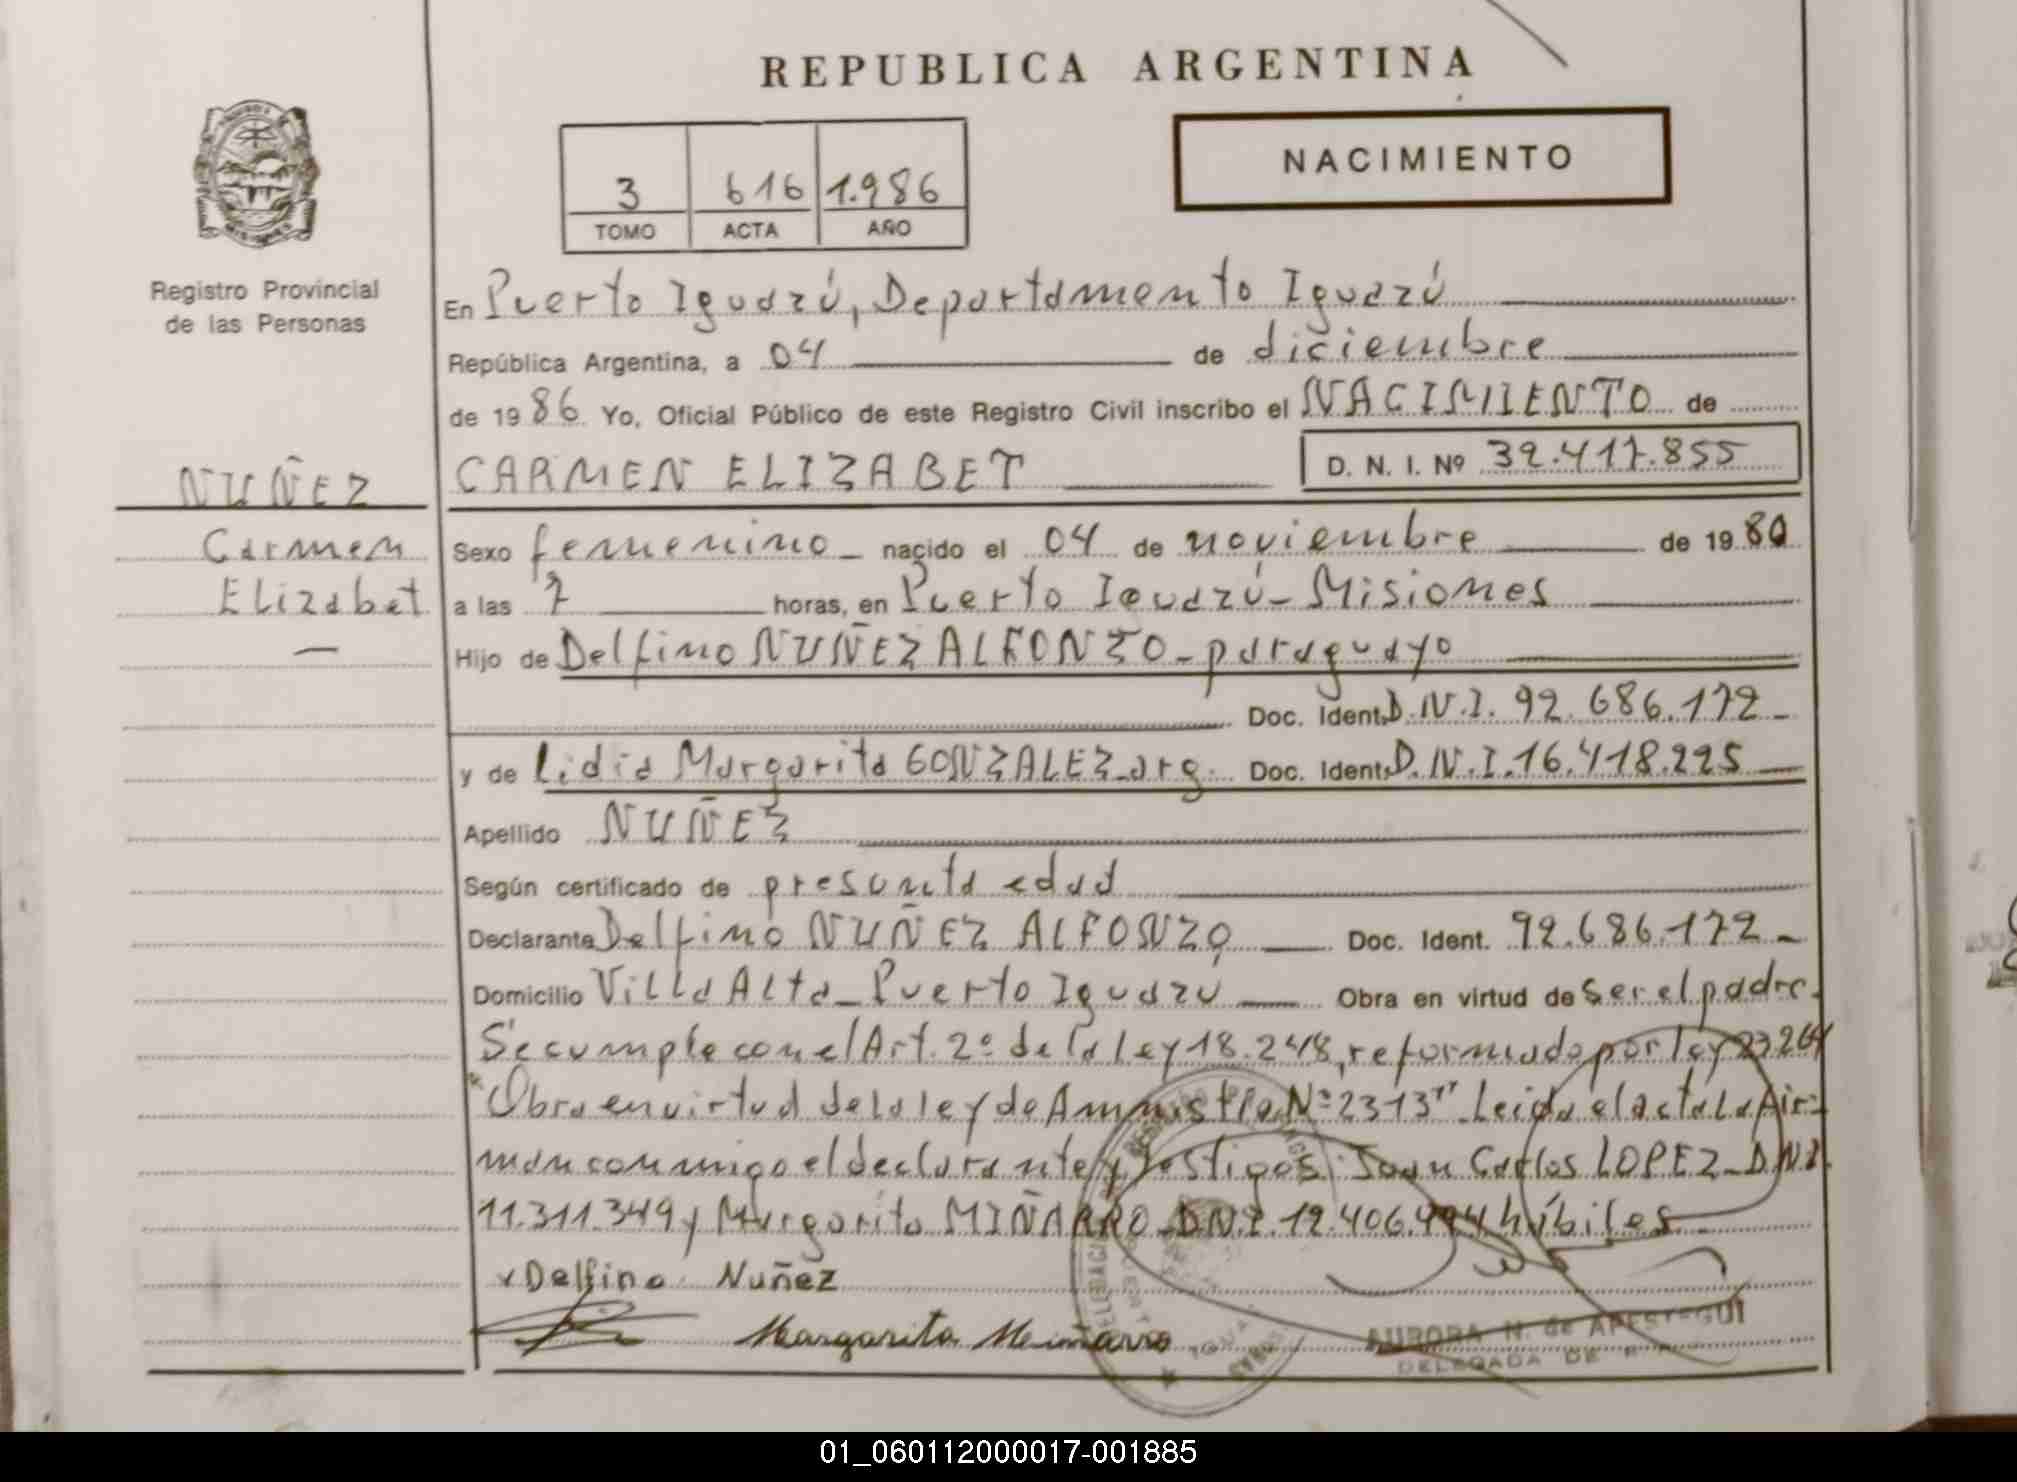 REPUBLICA ARGENTINA
NACIMIENTO
3 616 1.986
TOMO ACTA AÑO
Registro Provincial
de las Personas
En Puerto Iguazú, Departamento Iguazú
República Argentina, a 04 de diciembre
de 1986 Yo, Oficial Público de este Registro Civil inscribo el NACIMIENTO de
NUÑEZ
CARMEN ELIZABET
D. N. I. Nº 32.417.855
Carmen
Sexo femenino nacido el 04 de noviembre de 1980
Elizabet
a las 7 horas, en Puerto Iguazú - Misiones
Hijo de Delfino NUÑEZ ALFONZO - paraguayo
Doc. Ident. D.N.I. 92.686.172 -
y de Lidia Margarita GONZALEZ - arg. Doc. Ident. D.N.I. 16.418.225
Apellido NUÑEZ
Según certificado de presunta edad
Declarante Delfino NUÑEZ ALFONZO Doc. Ident. 92.686.172 -
Domicilio Villa Alta - Puerto Iguazú Obra en virtud de ser el padre.
Se cumple con el Art. 2º de la ley 18.248, reformado por ley 23264
"Obra en virtud de la ley de Amnistía Nº 2313" Leída el acta la fir-
man conmigo el declarante y testigos: Juan Carlos LOPEZ - D.N.I.
11.311.349 y Margarita MIÑARRO - D.N.I. 12.406.494 hábiles
x Delfino Nuñez
Margarita Minarro
AURORA N. de APESTEGUI
DELEGADA DE
01_060112000017-001885